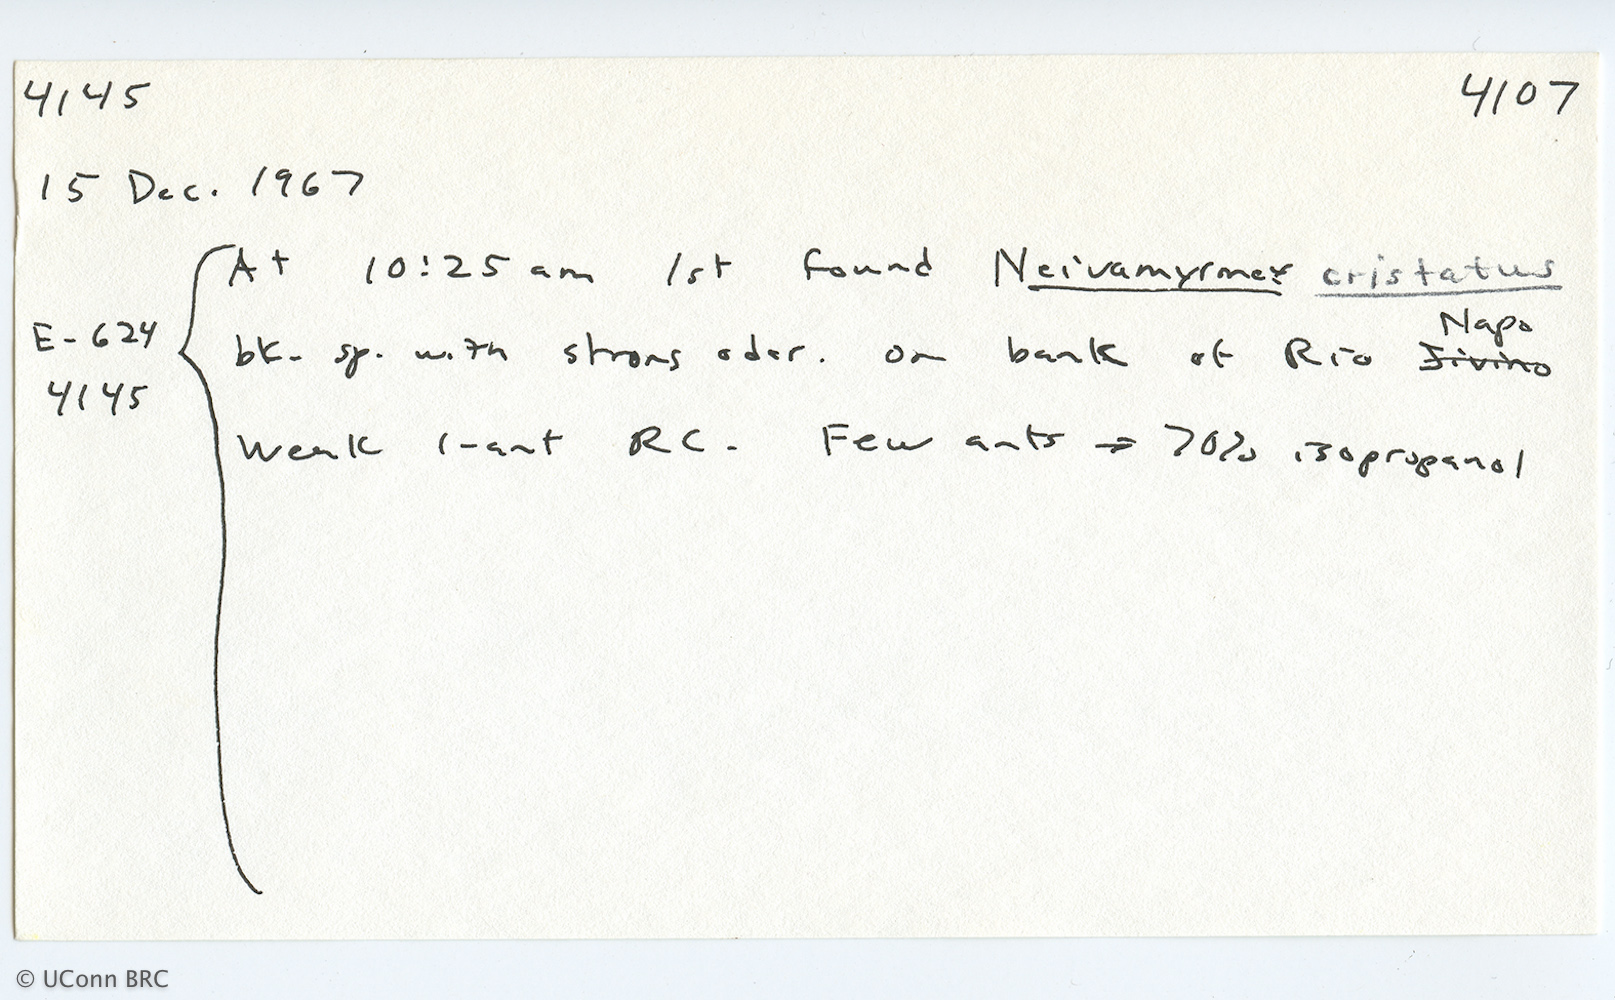 4145 4107
15 Dec. 1967
At 10:25 am 1st found Neivamyrmex cristatus
E-624
Napo
bk. sp. with strong odor. on bank of Rio Jivino
4145
Weak 1-ant RC. Few ants → 70% isopropanol
© UConn BRC